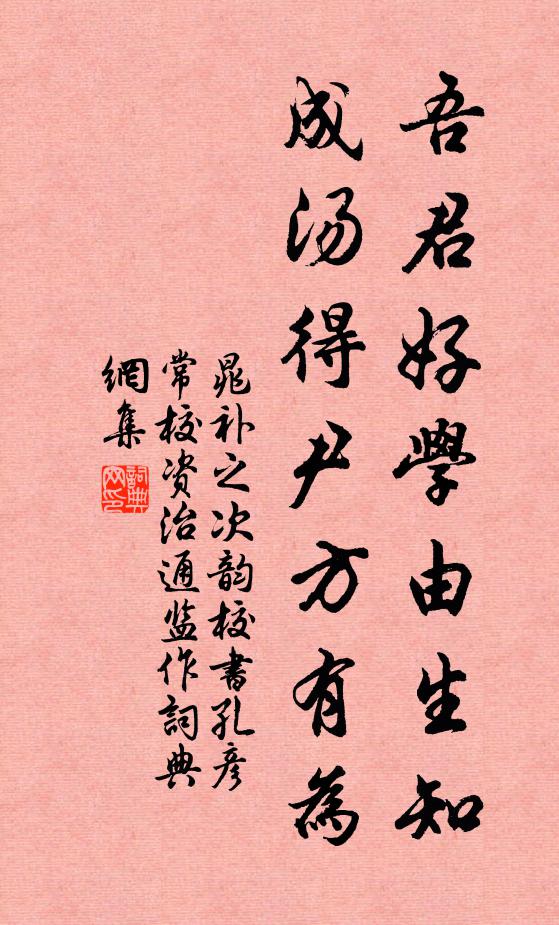 吾君好學由生知
成汤得尹方有為
晁补之次韵校書孔彦
常校资治通监作詞典
網集
詞典網印